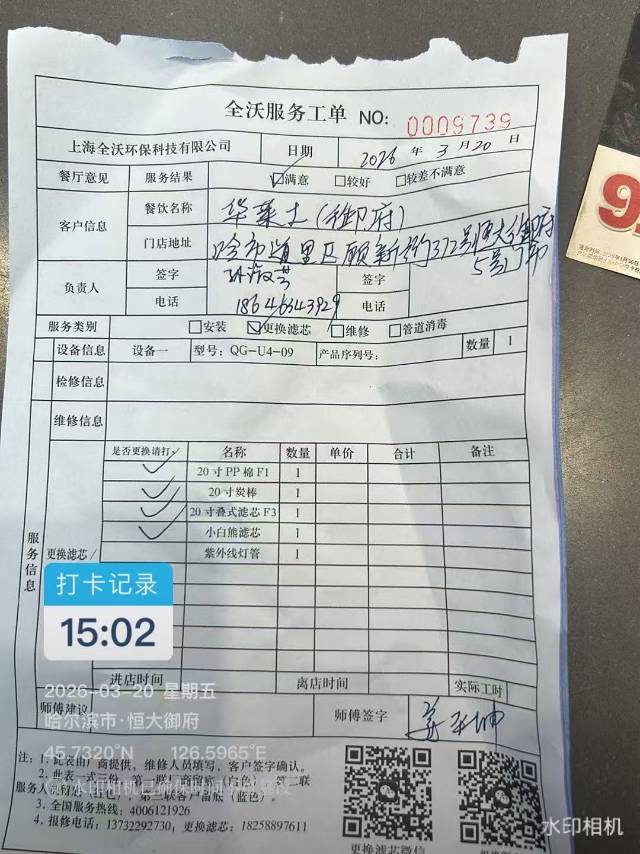 全沃服务工单 NO: 0009739
上海全沃环保科技有限公司 日期 2026 年 3 月 20 日
餐厅意见 服务结果 ☑满意 □较好 □较差不满意
客户信息 餐饮名称 华莱士(御府)
门店地址 哈市道里区顾新路372号恒大御府
5号门市
负责人 签字 签字
电话 18646343929 电话
服务类别 □安装 ☑更换滤芯 □维修 □管道消毒
设备信息 设备一 型号: QG-U4-09 产品序列号: 数量 1
检修信息
维修信息
服务信息
更换滤芯/
是否更换请打✓ 名称 数量 单价 合计 备注
✓ 20寸PP棉F1 1
✓ 20寸炭棒 1
✓ 20寸叠式滤芯F3 1
✓ 小白熊滤芯 1
紫外线灯管 1
打卡记录
15:02
进店时间 离店时间 实际工时
2026-03-20 星期五
师傅建议 师傅签字
哈尔滨市·恒大御府
45.7320°N 126.5965°E
注: 1. 此表由厂商提供, 维修人员填写, 客户签字确认。
2. 此表一式三份, 第一联厂商留底(白色) 第二联
服务人 第三联客户留底(蓝色)。
3. 全国服务热线: 4006121926
4. 报修电话: 13732292730, 更换滤芯: 18258897611
更换滤芯微信
水印相机